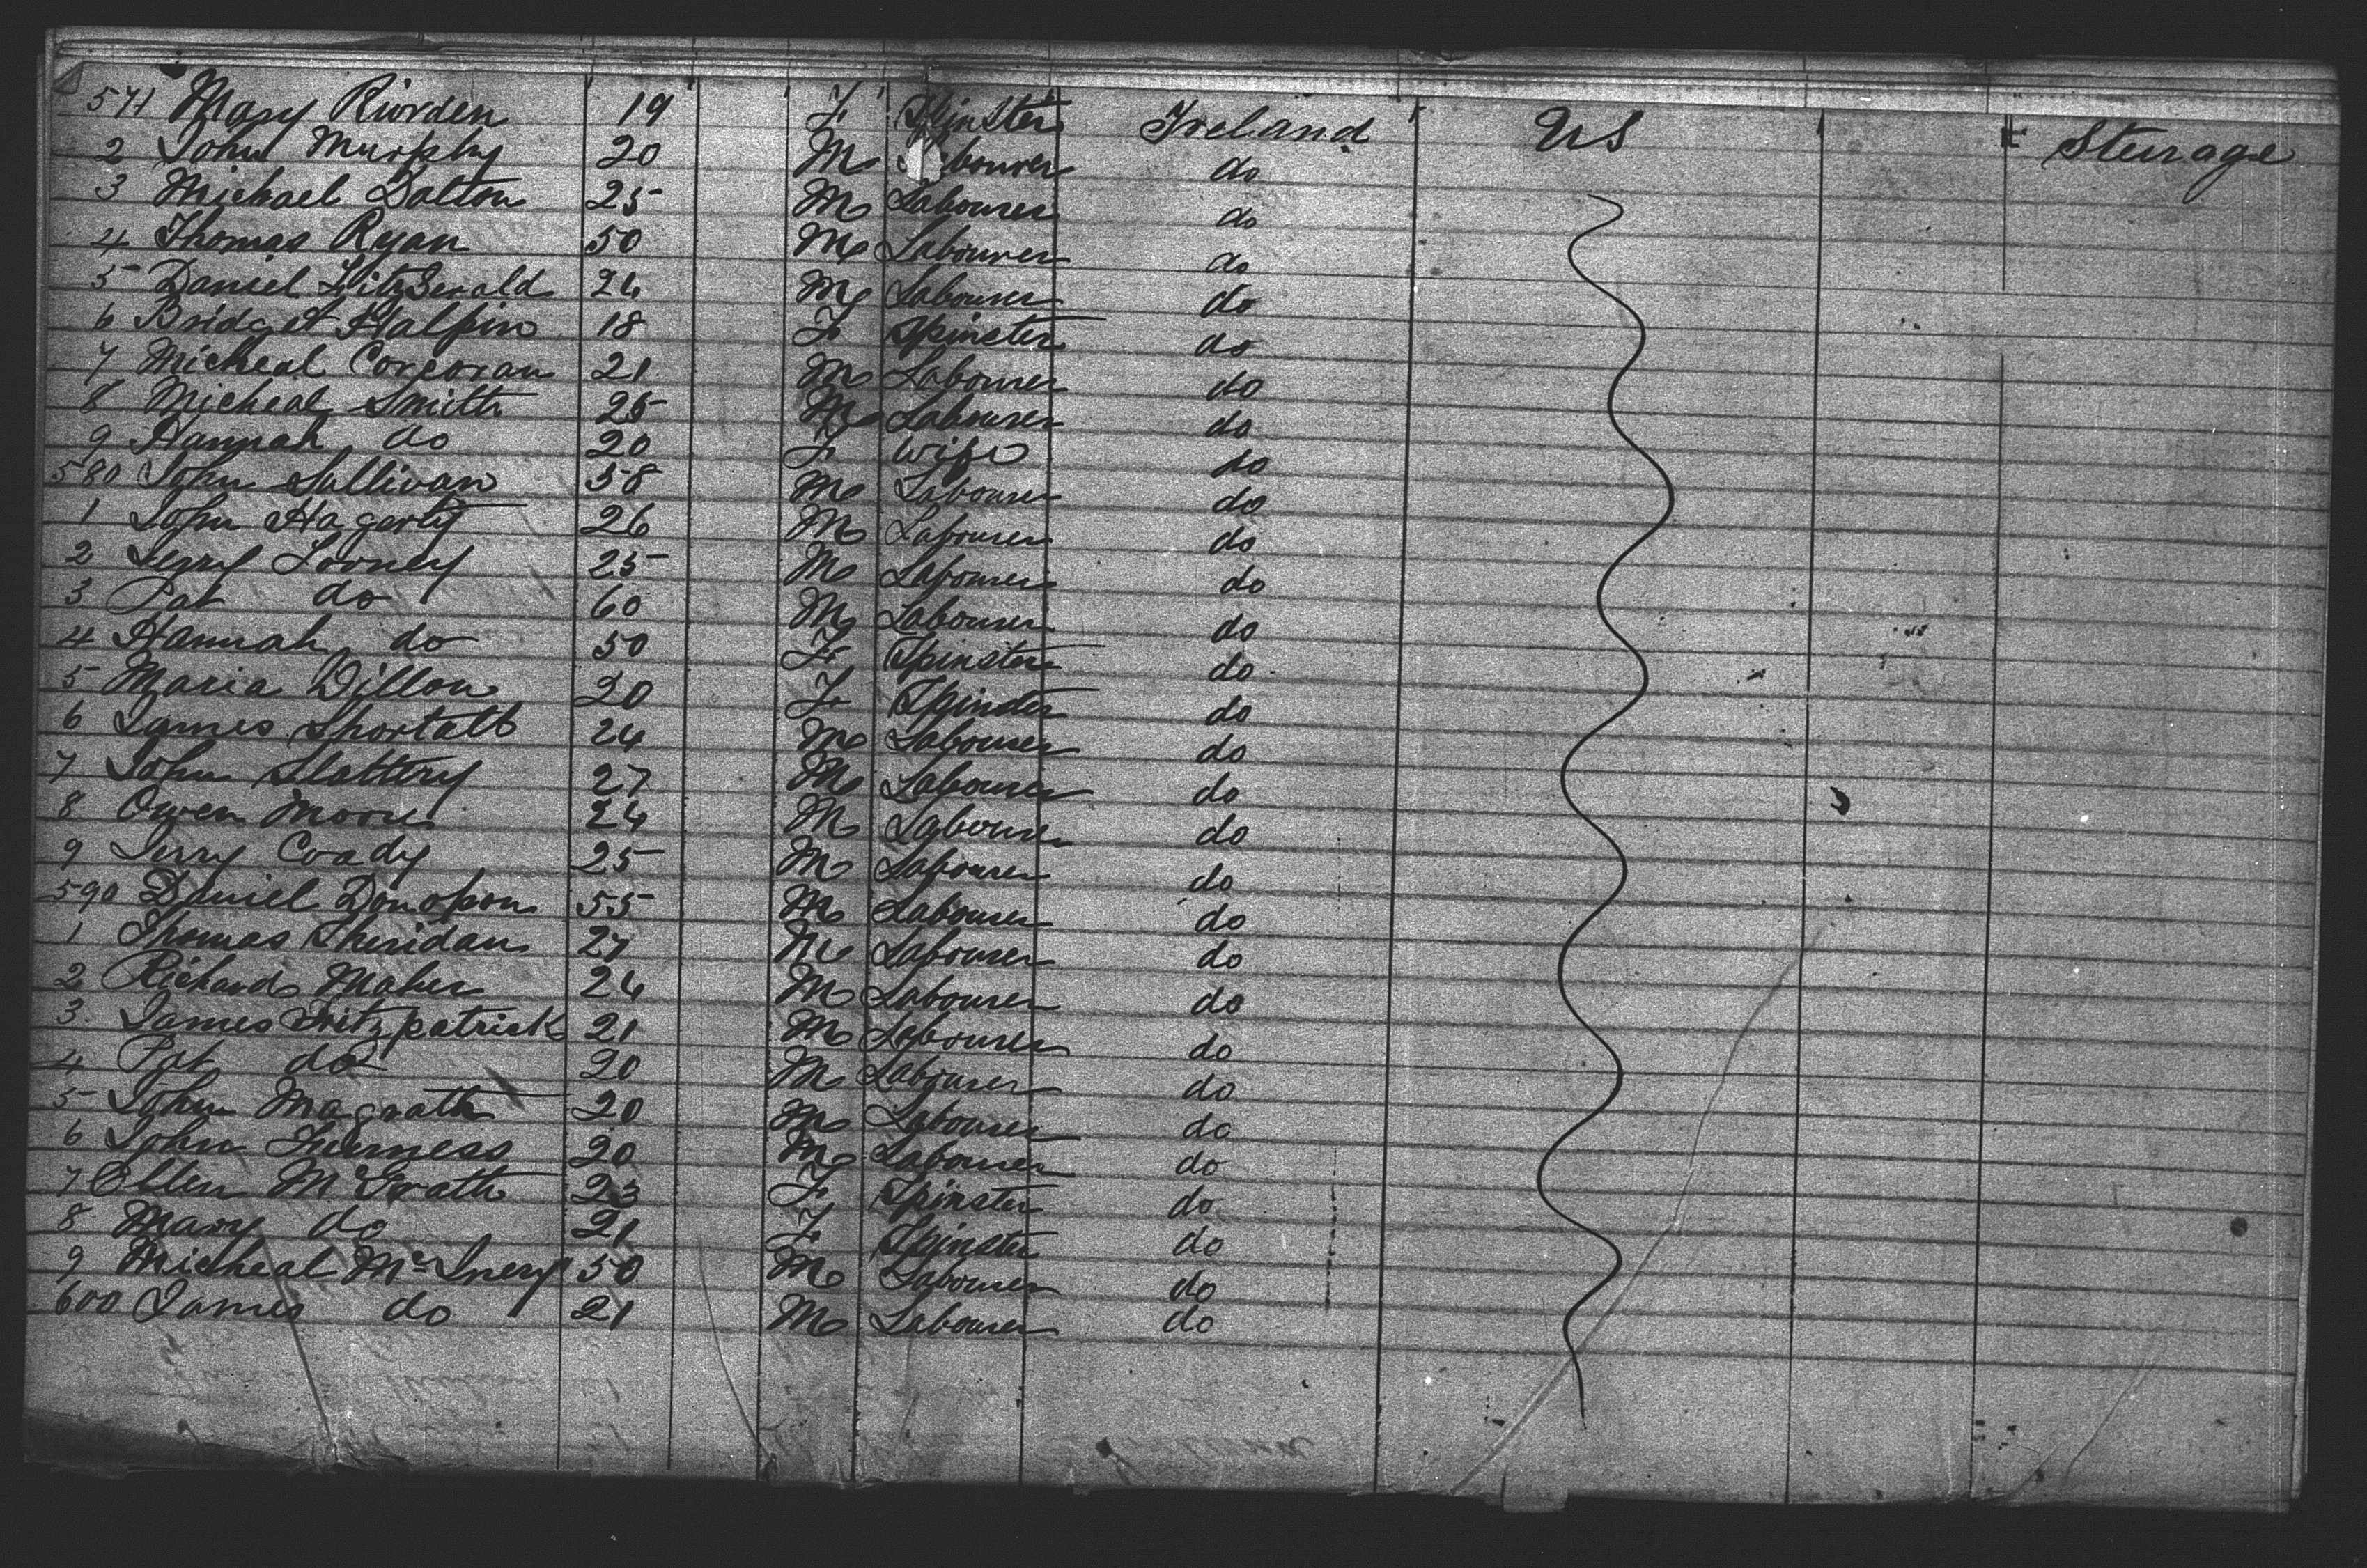 571 Mary Riorden 19 F Spinster Ireland US Steurage
2 John Murphy 20 M Labourer do
3 Michael Dalton 25 M Labourer do
4 Thomas Ryan 50 M Labourer do
5 Daniel FitzGerald 24 M Labourer do
6 Bridget Halpin 18 F Spinster do
7 Micheal Corcoran 21 M Labourer do
8 Micheal Smith 25 M Labourer do
9 Hannah do 20 F Wife do
580 John Sullivan 58 M Labourer do
1 John Hagerty 26 M Labourer do
2 Jerry Looney 25 M Labourer do
3 Pat do 60 M Labourer do
4 Hannah do 50 F Spinster do
5 Maria Dillon 20 F Spinster do
6 James Shortall 24 M Labourer do
7 John Slattery 27 M Labourer do
8 Owen Moore 24 M Labourer do
9 Jerry Coady 25 M Labourer do
590 Daniel 55 M Labourer do
1 Thomas Sheridan 27 M Labourer do
2 Richard Maher 24 M Labourer do
3 James Fitzpatrick 21 M Labourer do
4 Pat do 20 M Labourer do
5 John Magrath 20 M Labourer do
6 John 20 M Labourer do
7 Ellen McGrath 23 F Spinster do
8 Mary do 21 F Spinster do
9 Micheal McInery 50 M Labourer do
600 James do 21 M Labourer do